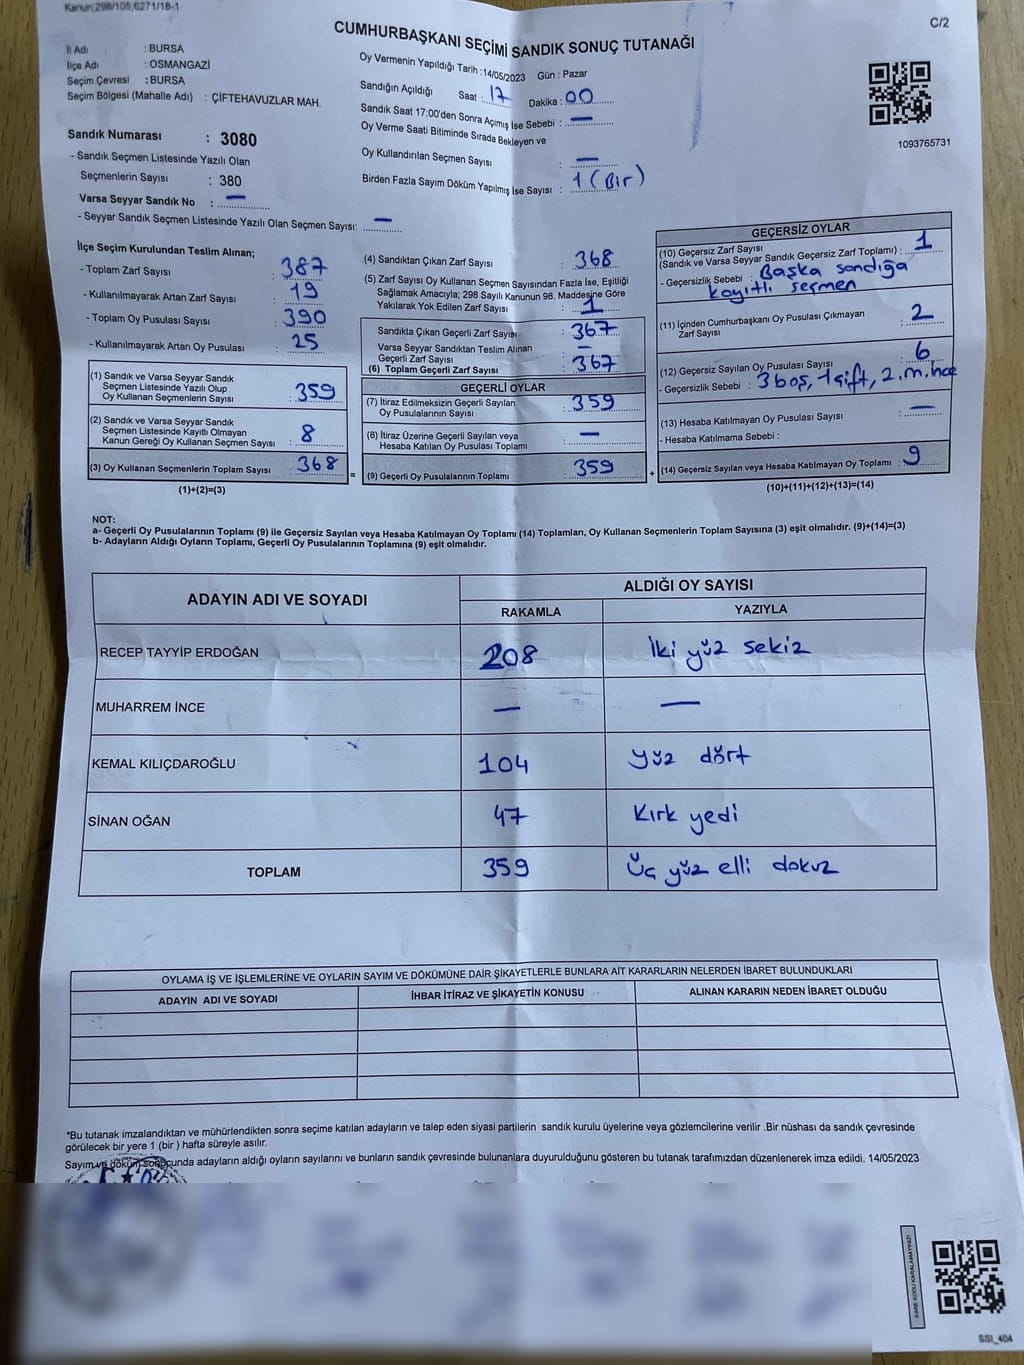 Kanun:298/105,6271/18-1
C/2
CUMHURBAŞKANI SEÇİMİ SANDIK SONUÇ TUTANAĞI
İl Adı : BURSA
İlçe Adı : OSMANGAZİ
Seçim Çevresi : BURSA
Seçim Bölgesi (Mahalle Adı) : ÇİFTEHAVUZLAR MAH.
Oy Vermenin Yapıldığı Tarih :14/05/2023 Gün : Pazar
Sandığın Açıldığı Saat : 17 Dakika : 00
Sandık Saat 17:00'den Sonra Açımış İse Sebebi : —
Oy Verme Saati Bitiminde Sırada Bekleyen ve
Oy Kullandırılan Seçmen Sayısı : —
Birden Fazla Sayım Döküm Yapılmış İse Sayısı : 1 (Bir)
1093765731
Sandık Numarası : 3080
- Sandık Seçmen Listesinde Yazılı Olan
Seçmenlerin Sayısı : 380
Varsa Seyyar Sandık No : —
- Seyyar Sandık Seçmen Listesinde Yazılı Olan Seçmen Sayısı: —
İlçe Seçim Kurulundan Teslim Alınan;
- Toplam Zarf Sayısı : 387
- Kullanılmayarak Artan Zarf Sayısı : 19
- Toplam Oy Pusulası Sayısı : 390
- Kullanılmayarak Artan Oy Pusulası : 25
(1) Sandık ve Varsa Seyyar Sandık
Seçmen Listesinde Yazılı Olup
Oy Kullanan Seçmenlerin Sayısı : 359
(2) Sandık ve Varsa Seyyar Sandık
Seçmen Listesinde Kayıtlı Olmayan
Kanun Gereği Oy Kullanan Seçmen Sayısı : 8
(3) Oy Kullanan Seçmenlerin Toplam Sayısı : 368
(1)+(2)=(3)
(4) Sandıktan Çıkan Zarf Sayısı : 368
(5) Zarf Sayısı Oy Kullanan Seçmen Sayısından Fazla İse, Eşitliği
Sağlamak Amacıyla; 298 Sayılı Kanunun 98. Maddesine Göre
Yakılarak Yok Edilen Zarf Sayısı : 1
Sandıkta Çıkan Geçerli Zarf Sayısı : 367
Varsa Seyyar Sandıktan Teslim Alınan
Geçerli Zarf Sayısı : —
(6) Toplam Geçerli Zarf Sayısı : 367
GEÇERLİ OYLAR
(7) İtiraz Edilmeksizin Geçerli Sayılan
Oy Pusulalarının Sayısı : 359
(8) İtiraz Üzerine Geçerli Sayılan veya
Hesaba Katılan Oy Pusulası Toplamı : —
= (9) Geçerli Oy Pusulalarının Toplamı : 359 +
GEÇERSİZ OYLAR
(10) Geçersiz Zarf Sayısı
(Sandık ve Varsa Seyyar Sandık Geçersiz Zarf Toplamı) : 1
- Geçersizlik Sebebi : Başka sandığa
kayıtlı seçmen
(11) İçinden Cumhurbaşkanı Oy Pusulası Çıkmayan
Zarf Sayısı : 2
(12) Geçersiz Sayılan Oy Pusulası Sayısı : 6
- Geçersizlik Sebebi : 3 boş, 1 çift, 2.m.ince
(13) Hesaba Katılmayan Oy Pusulası Sayısı : —
- Hesaba Katılmama Sebebi :
(14) Geçersiz Sayılan veya Hesaba Katılmayan Oy Toplamı : 9
(10)+(11)+(12)+(13)=(14)
NOT:
a- Geçerli Oy Pusulalarının Toplamı (9) ile Geçersiz Sayılan veya Hesaba Katılmayan Oy Toplamı (14) Toplamları, Oy Kullanan Seçmenlerin Toplam Sayısına (3) eşit olmalıdır. (9)+(14)=(3)
b- Adayların Aldığı Oyların Toplamı, Geçerli Oy Pusulalarının Toplamına (9) eşit olmalıdır.
ADAYIN ADI VE SOYADI ALDIĞI OY SAYISI
RAKAMLA YAZIYLA
RECEP TAYYİP ERDOĞAN 208 İki yüz sekiz
MUHARREM İNCE — —
KEMAL KILIÇDAROĞLU 104 Yüz dört
SİNAN OĞAN 47 Kırk yedi
TOPLAM 359 Üç yüz elli dokuz
OYLAMA İŞ VE İŞLEMLERİNE VE OYLARIN SAYIM VE DÖKÜMÜNE DAİR ŞİKAYETLERLE BUNLARA AİT KARARLARIN NELERDEN İBARET BULUNDUKLARI
ADAYIN ADI VE SOYADI İHBAR İTİRAZ VE ŞİKAYETİN KONUSU ALINAN KARARIN NEDEN İBARET OLDUĞU
*Bu tutanak imzalandıktan ve mühürlendikten sonra seçime katılan adayların ve talep eden siyasi partilerin sandık kurulu üyelerine veya gözlemcilerine verilir .Bir nüshası da sandık çevresinde
görülecek bir yere 1 (bir ) hafta süreyle asılır.
Sayım ve döküm sonucunda adayların aldığı oyların sayılarını ve bunların sandık çevresinde bulunanlara duyurulduğunu gösteren bu tutanak tarafımızdan düzenlenerek imza edildi. 14/05/2023
KARE KODU KARALAMAYINIZ!
SSI_404